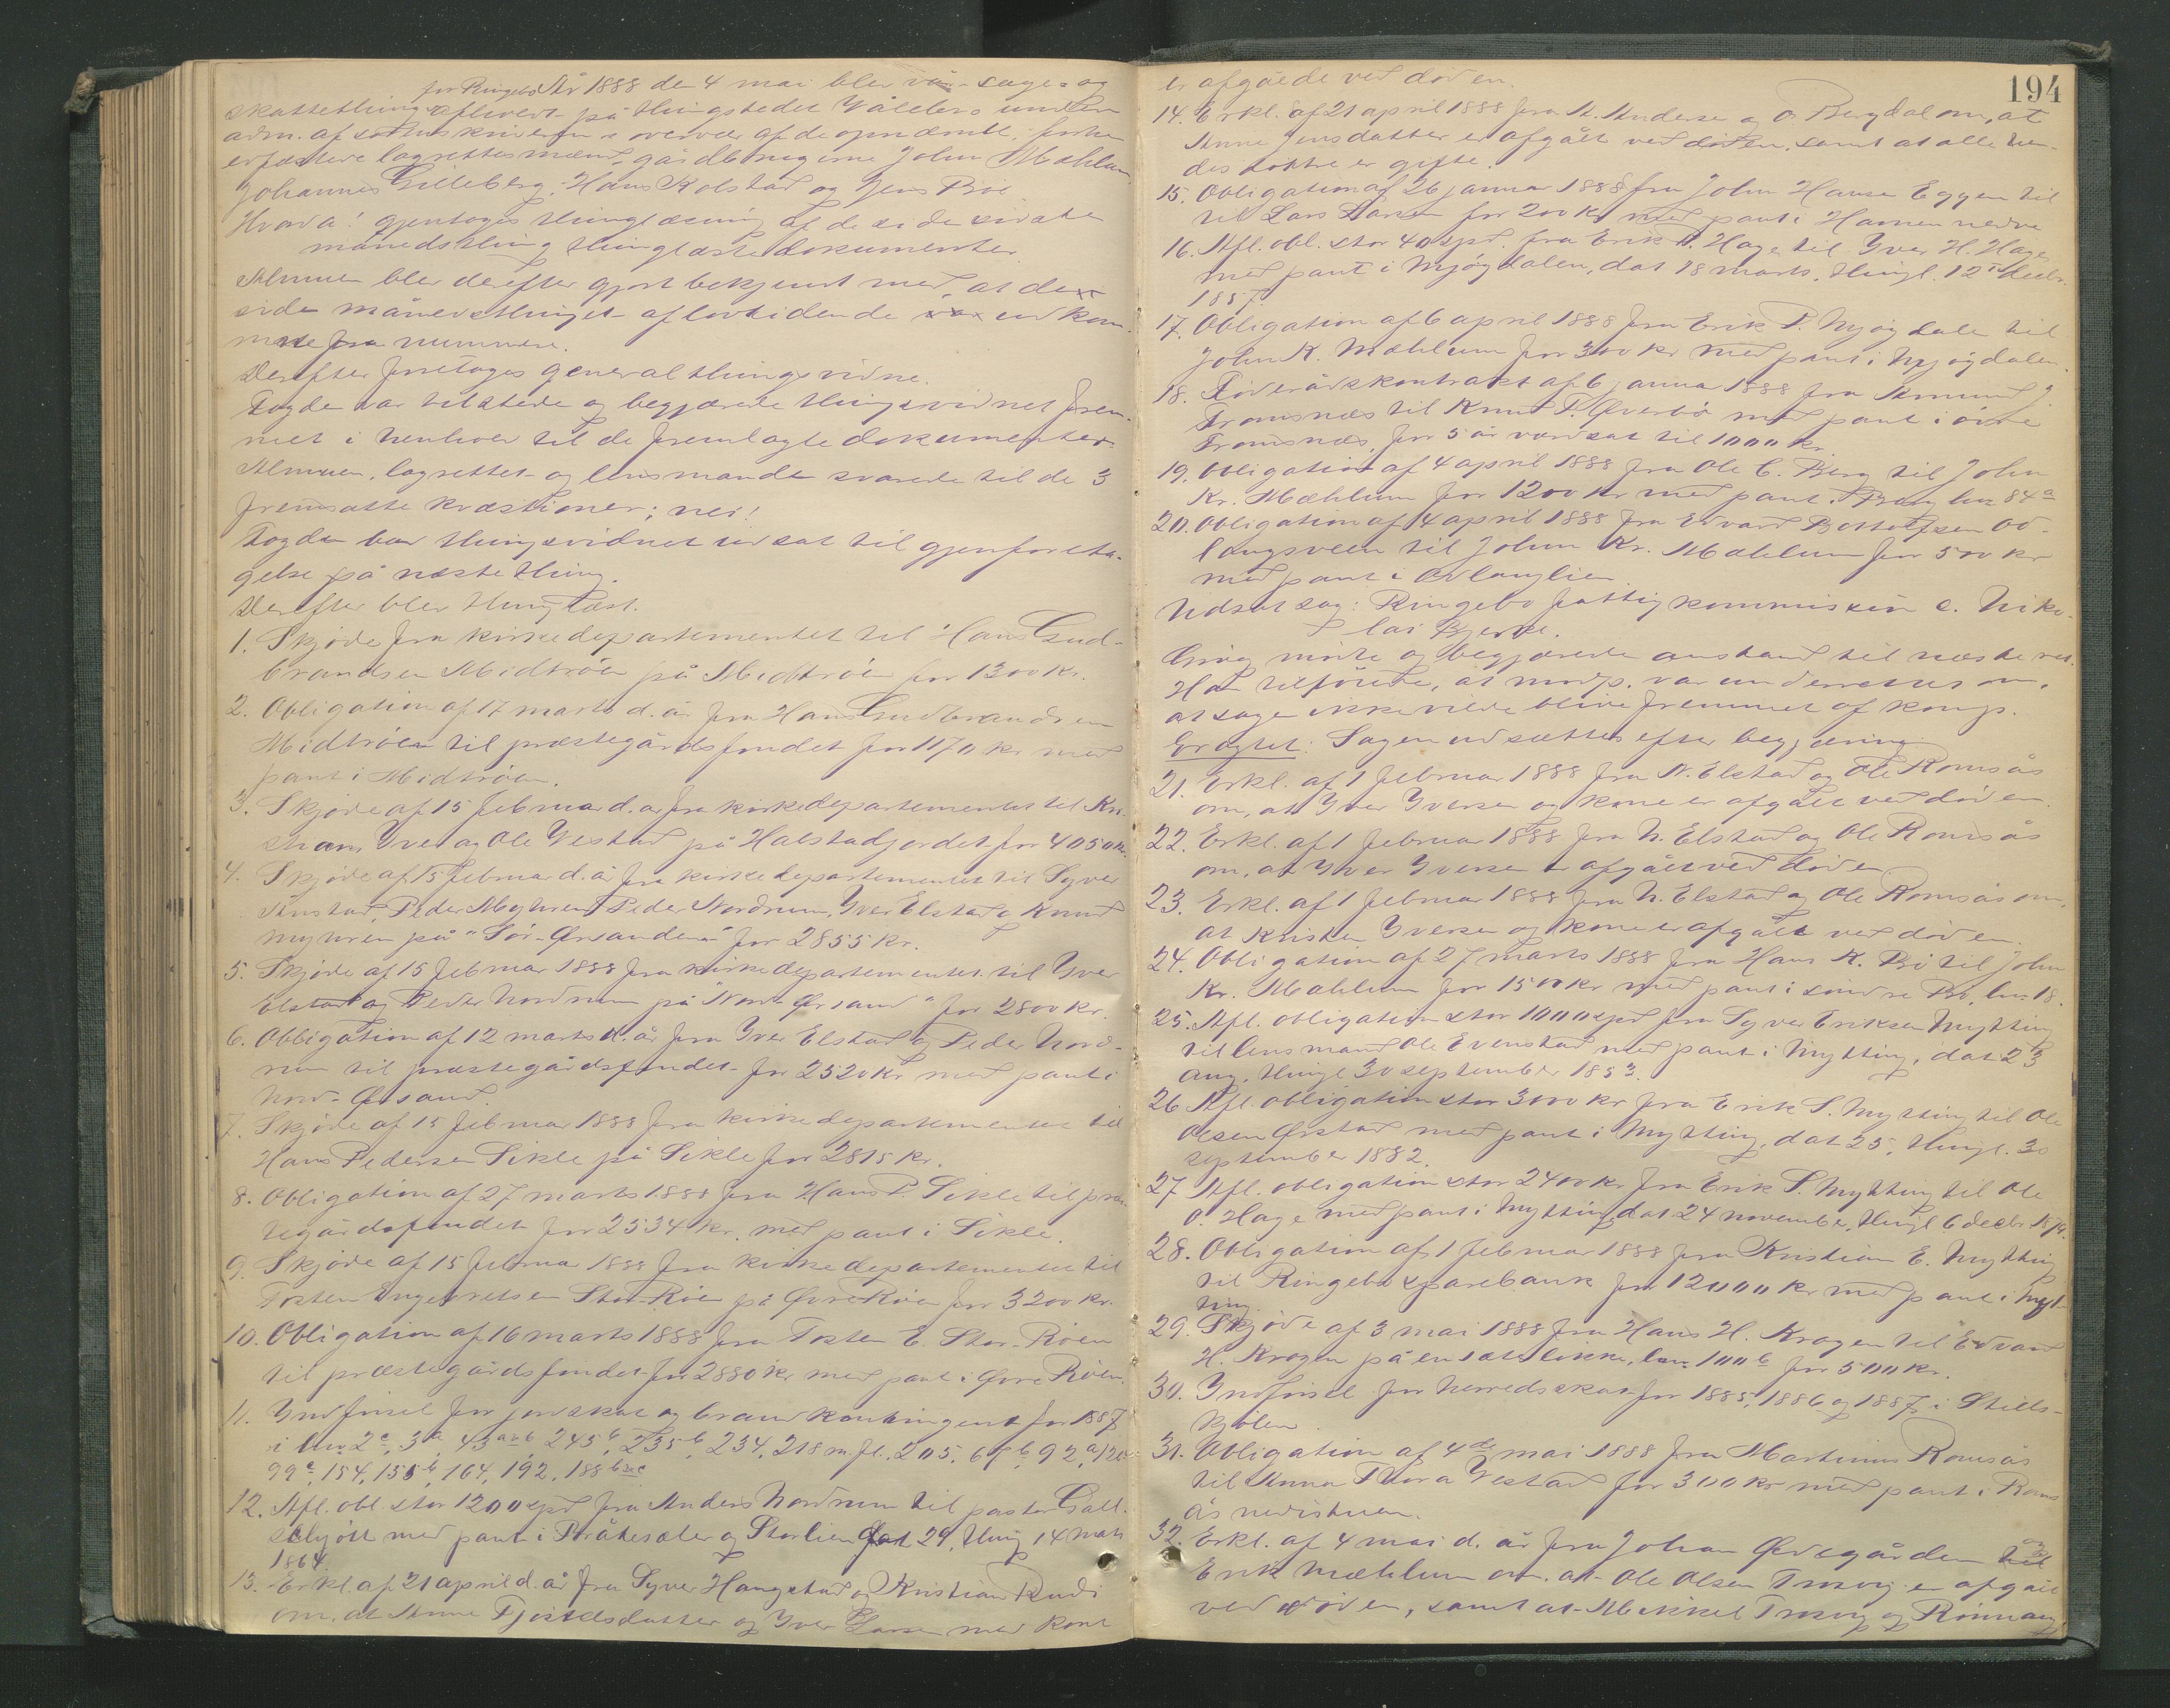 for Ringebo År 1888 den 4 mai blev vår- sage- og
skattething afholdt på thingstedet Våleberg under
adm. af sorenskriveren i overvær af de opnævnte, forhen
erfastede lagrettesmænd, gårdbrugerne John Mæhlum,
Johannes Gilleberg, Hans Kolstad og Jens Bøe
Hvorda! gjentoges thinglæsning af de siden sidste
månedsthing thinglæste dokumenter.
Almuen blev derefter gjort bekjent med, at de
siden månedsthinget af lovtidende udkom-
ne numere.
Derefter foretoges generalthingsvidne.
Fogden var tilstede og begjærede thingsvidnet frem-
met i henhold til de fremlagte dokumenter.
Almuen, lagrettet og lensmanden svarede til de 3
fremsatte kvæstioner; nei!
Fogden bad thingsvidnet udsat til gjenforeta-
gelse på næste thing.
Derefter blev thinglæst.
1. Skjøde fra kirkedepartementet til Hans Gud-
brandsen Midtrøen på Midtrøen for 1300 kr.
2. Obligation af 17 marts d. år fra Hans Gudbrandsen
Midtrøen til præstegårdsfondet for 1170 kr med
pant i Midtrøen.
3. Skjøde af 15 februar d. a. fra kirkedepartementet til Kri-
stians Iver og Ole Vestad på Halstadjordet for 4050 kr.
4. Skjøde af 15 februar d. år fra kirkedepartementet til Syver
Anstad, Peder Myhren, Peder Nordrum, Iver Elstad og Knud
Myhren på "Sør-Ørsanden" for 2855 kr.
5. Skjøde af 15 februar 1888 fra kirkedepartementet til Iver
Elstad og Peder Nordrum på "Nord-Ørsand" for 2800 kr.
6. Obligation af 12 marts d. år fra Iver Elstad og Peder Nord-
rum til præstegårdsfondet for 2520 kr med pant i
Nord-Ørsand.
7. Skjøde af 15 februar 1888 fra kirkedepartementet til
Hans Pedersen Sikle på Sikle for 2815 kr.
8. Obligation af 27 marts 1888 fra Hans P. Sikle til præs-
tegårdsfondet for 2534 kr. med pant i Sikle.
9. Skjøde af 15 februar 1888 fra kirkedepartementet til
Tosten Engebretsen Stor-Røen på Øvre Røen for 3200 kr.
10. Obligation af 16 marts 1888 fra Tosten E. Stor-Røen
til præstegårdsfondet for 2880 kr med pant i Øvre Røen.
11. Indførsel for jordskat og brandkontingent for 1887
i lnr. 2c, 3a, 43a&b, 245b, 235b, 234, 218 m. fl., 205, 67b, 92a, 120
99c, 154, 155b, 164, 192, 188b&c
12. Afl. obl. stor 1200 spd fra Anders Nordrum til pastor Gall-
schjøtt med pant i Bråkesæter og Storlien dat 29, thingl 14 marts
1864.
13. Erkl. af 21 april d. år fra Syver Haugstad og Kristian Rudi
om, at Anne Fjostelsdatter og Iver Larsen med kone
194
er afgåede ved døden.
14. Erkl. af 21 april 1888 fra A. Andersen og O. Bergdal om, at
Anne Jensdatter er afgået ved døden, samt at alle hen-
des døttre er gifte.
15. Obligation af 26 januar 1888 fra John Hansen Eggen til
til Lars Larsen for 200 kr med pant i Hamen nedre
16. Afl. obl. stor 40 spd. fra Erik P. Hage til Iver H. Hage
med pant i Mjøgdalen, dat 18 marts, thingl. 12te decbr.
1857.
17. Obligation af 6 april 1888 fra Erik P. Mjøgdalen til
John K. Mæhlum for 300 kr med pant i Mjøgdalen.
18. Føderådskontrakt af 6 januar 1888 fra Amund J.
Tromsnæs til Knud P. Øverbø med pant i øvre
Tromsnæs, for 5 år værdsat til 1000 kr.
19. Obligation af 4 april 1888 fra Ole C. Berg til John
Kr. Mæhlum for 1200 kr med pant i Berg lnr. 84a
20. Obligation af 4 april 1888 fra Edvard Bottolfsen Od-
langsveen til John Kr. Mæhlum for 500 kr
med pant i Odlanglien.
Udsat sag: Ringebo fattigkommission c. Niko-
lai Bjerke.
Grøg mødte og begjærede anstand til næste ret.
Han tilførte, at modp. var underrettet om,
at sagen ikke vilde blive fremmet af komp.
Eragtet: Sagen udsættes efter begjæring.
21. Erkl. af 1 februar 1888 fra N. Elstad og Ole Romsås
om, at Iver Iversen og kone er afgået ved døden.
22. Erkl. af 1 februar 1888 fra N. Elstad og Ole Romsås
om, at Iver Iversen er afgået ved døden
23. Erkl. af 1 februar 1888 fra N. Elstad og Ole Romsås om,
at Kristen Iversen og kone er afgået ved døden.
24. Obligation af 27 marts 1888 fra Hans K. Bø til John
Kr. Mæhlum for 1500 kr med pant i søndre Bø, lnr. 18.
25. Afl. obligation stor 1000 spd fra Syver Eriksen Mytting
til lensmand Ole Evenstad med pant i Mytting, dat 23
aug. thingl 30 september 1853.
26 Afl. obligation stor 3000 kr fra Erik S. Mytting til Ole
Olsen Ørstad med pant i Mytting, dat 25, thingl. 30
september 1882.
27 Afl. obligation stor 2400 kr fra Erik S. Mytting til Ole
O. Hage med pant i Mytting dat 24 november, thingl 6 decbr 1879.
28. Obligation af 1 februar 1888 fra Kristian E. Mytting
til Ringebu sparebank for 12000 kr med pant i Myt-
ting.
29. Skjøde af 3 mai 1888 fra Hans H. Krogen til Edvard
H. Krogen på en sætrløkke, lnr. 100b for 500 kr.
30. Indførsel for herredsskat for 1885, 1886 og 1887 i Stills-
kjølen.
31. Obligation af 4de mai 1888 fra Martinus Romsås
til Anna Thora Vestad for 300 kr med pant i Roms
ås nedistuen.
32. Erkl. af 4 mai d. år fra Johan Ødegården og
Erik Mæhlum om, at Ole Olsen Trosvig er afgået
ved døden, samt at Mikkel Trosvig og Rønnaug